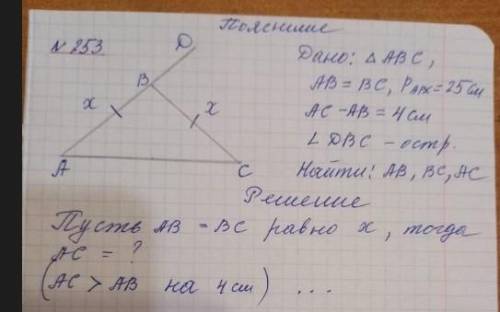 Пояснение
N 253
Дано: △ ABC,
AB = BC, P ABC = 25 см
AC - AB = 4 см
∠ DBC - остр.
Найти: AB, BC, AC
D
B
x
x
A
C
Решение
Пусть AB = BC равно x, тогда
AC = ?
(AC > AB на 4 см) ...